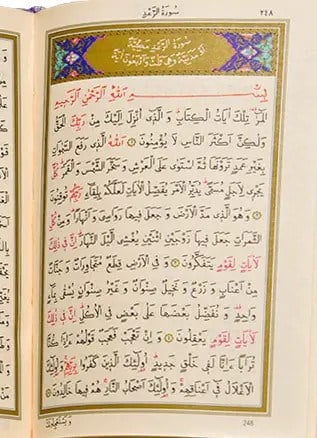 سُورَةُ الرَّعْدِ ٢٤٨
سُورَةُ الرَّعْدِ مَكِّيَّةٌ
اَوْ مَدَنِيَّةٌ وَهِيَ ثَلَاثٌ وَاَرْبَعُونَ اٰيَةً
بِسْمِ اللّٰهِ الرَّحْمٰنِ الرَّحِيمِ
الٓمٓرٰ تِلْكَ اٰيَاتُ الْكِتَابِ وَالَّذِى اُنْزِلَ اِلَيْكَ مِنْ رَبِّكَ الْحَقُّ
وَلٰكِنَّ اَكْثَرَ النَّاسِ لَا يُؤْمِنُونَ ١ اَللّٰهُ الَّذِى رَفَعَ السَّمٰوَاتِ
بِغَيْرِ عَمَدٍ تَرَوْنَهَا ثُمَّ اسْتَوٰى عَلَى الْعَرْشِ وَسَخَّرَ الشَّمْسَ وَالْقَمَرَ كُلٌّ
يَجْرِى لِاَجَلٍ مُسَمًّى يُدَبِّرُ الْاَمْرَ يُفَصِّلُ الْاٰيَاتِ لَعَلَّكُمْ بِلِقَاءِ رَبِّكُمْ تُوقِنُونَ
٢ وَهُوَ الَّذِى مَدَّ الْاَرْضَ وَجَعَلَ فِيهَا رَوَاسِىَ وَاَنْهَارًا وَمِنْ كُلِّ
الثَّمَرَاتِ جَعَلَ فِيهَا زَوْجَيْنِ اثْنَيْنِ يُغْشِى الَّيْلَ النَّهَارَ اِنَّ فِى ذٰلِكَ
لَاٰيَاتٍ لِقَوْمٍ يَتَفَكَّرُونَ ٣ وَفِى الْاَرْضِ قِطَعٌ مُتَجَاوِرَاتٌ وَجَنَّاتٌ
مِنْ اَعْنَابٍ وَزَرْعٌ وَنَخِيلٌ صِنْوَانٌ وَغَيْرُ صِنْوَانٍ يُسْقٰى بِمَاءٍ
وَاحِدٍ وَنُفَضِّلُ بَعْضَهَا عَلٰى بَعْضٍ فِى الْاُكُلِ اِنَّ فِى ذٰلِكَ
لَاٰيَاتٍ لِقَوْمٍ يَعْقِلُونَ ٤ وَاِنْ تَعْجَبْ فَعَجَبٌ قَوْلُهُمْ ءَاِذَا كُنَّا
تُرَابًا ءَاِنَّا لَفِى خَلْقٍ جَدِيدٍ اُولٰئِكَ الَّذِينَ كَفَرُوا بِرَبِّهِمْ وَاُولٰئِكَ
الْاَغْلَالُ فِى اَعْنَاقِهِمْ وَاُولٰئِكَ اَصْحَابُ النَّارِ هُمْ فِيهَا خَالِدُونَ ٥
248